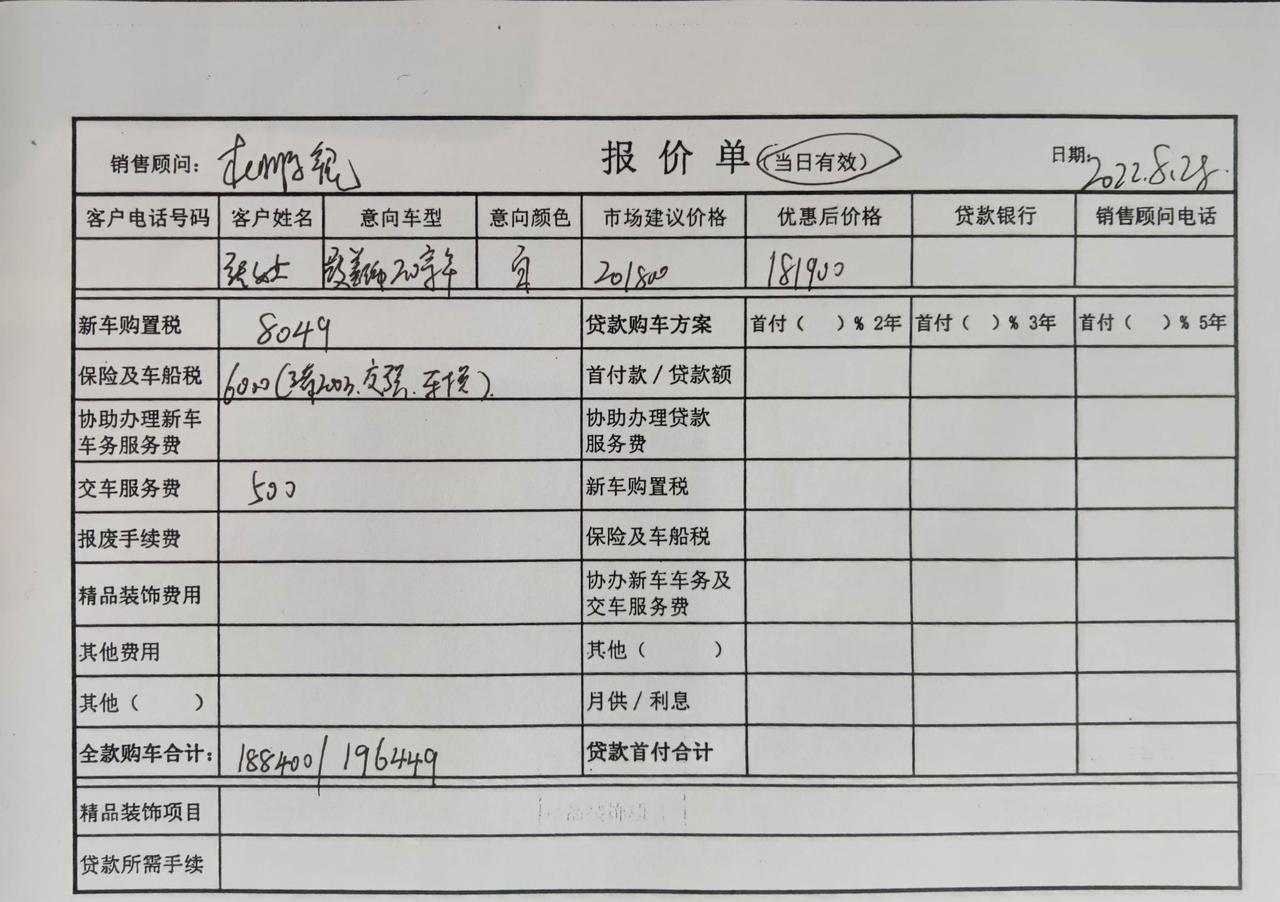 销售顾问: 报价单(当日有效) 日期: 2022.8.28.
客户电话号码 客户姓名 意向车型 意向颜色 市场建议价格 优惠后价格 贷款银行 销售顾问电话
张女士 201800 181900
新车购置税 8049 贷款购车方案 首付( )% 2年 首付( )% 3年 首付( )% 5年
保险及车船税 6000(三者200万.交强.车损). 首付款/贷款额
协助办理新车 协助办理贷款
车务服务费 服务费
交车服务费 500 新车购置税
报废手续费 保险及车船税
精品装饰费用 协办新车车务及
交车服务费
其他费用 其他( )
其他( ) 月供/利息
全款购车合计: 188400/196449 贷款首付合计
精品装饰项目
贷款所需手续